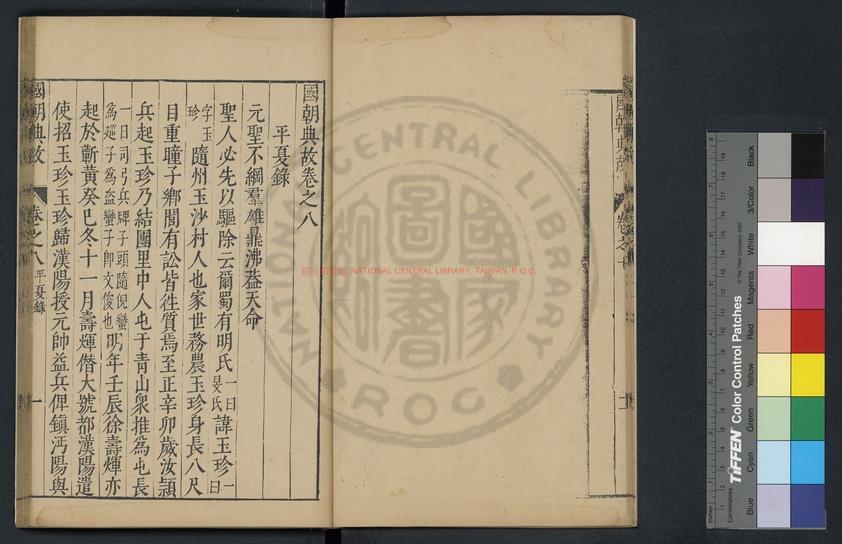 國朝典故卷之八
平夏錄
元聖不綱羣雄鼎沸葢天命
聖人必先以驅除云爾蜀有明氏一曰旻氏諱玉珍一曰
字玉珍隨州玉沙村人也家世務農玉珍身長八尺
目重瞳子鄉閭有訟皆往質焉至正辛卯歲汝潁
兵起玉珍乃結團里中人屯于青山衆推為屯長
一曰司弓兵牌子頭隨倪蠻子為巡子為盜蠻子即文俊也明年壬辰徐壽煇亦
起於蘄黃癸巳冬十一月壽煇僭大號都漢陽遣
使招玉珍玉珍歸漢陽授元帥益兵俾鎮沔陽與
國朝典故 卷之八 平夏錄 一
國朝典故 卷之
NATIONAL CENTRAL LIBRARY, TAIWAN, R.O.C.
國家圖書館
NATIONAL CENTRAL LIBRARY
ROC
TIFFEN Color Control Patches
© The Tiffen Company, 2007
Centimetres
Inches
Blue
Cyan
Green
Yellow
Red
Magenta
White
3/Color
Black